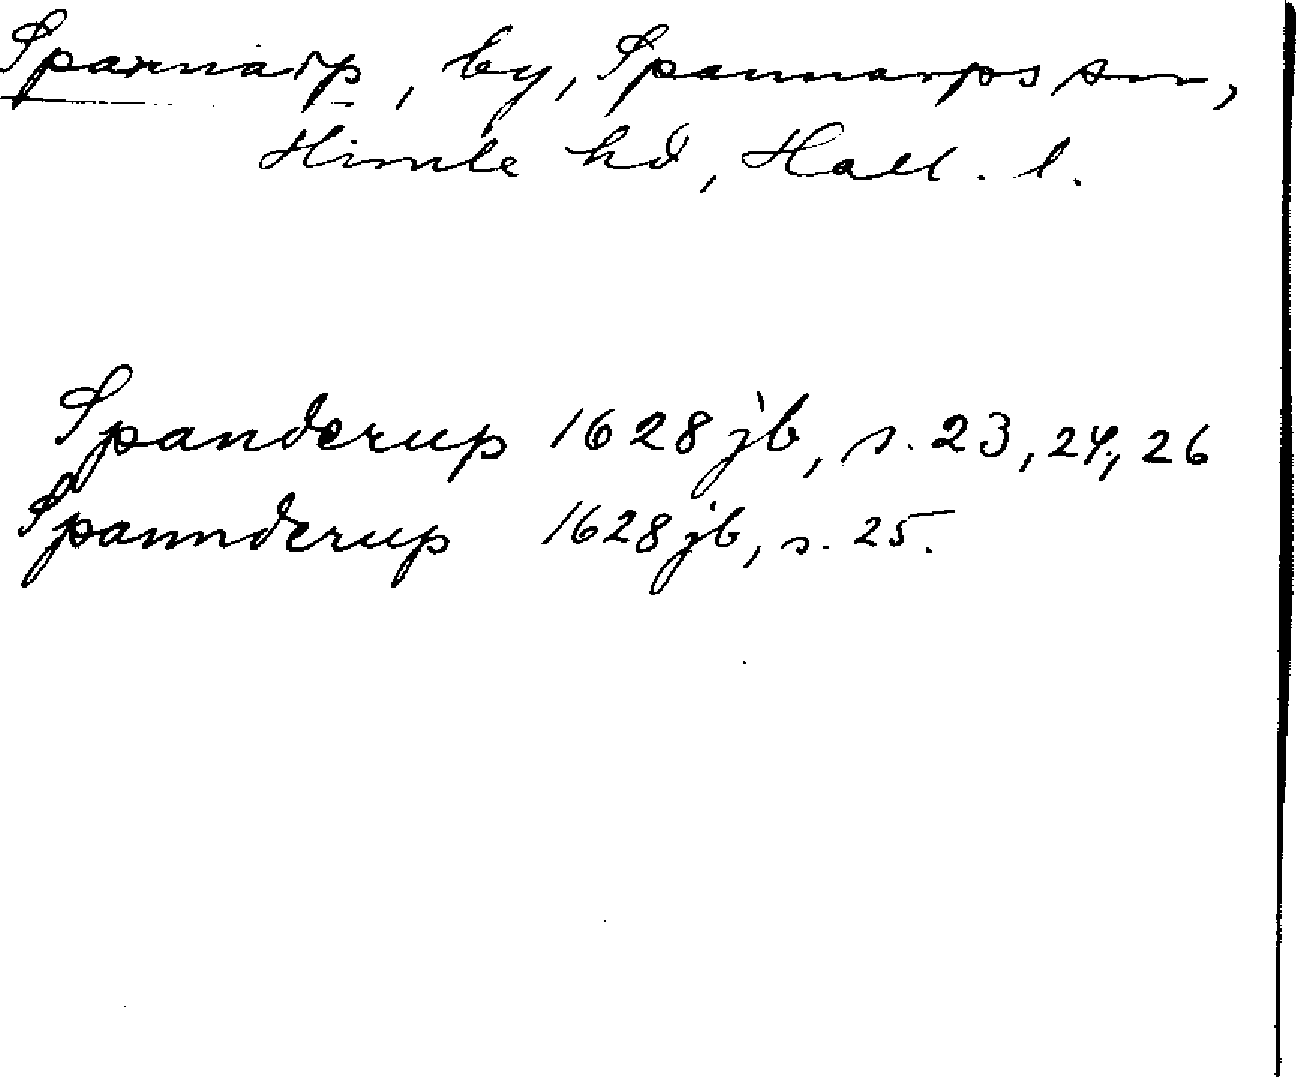 Spannarp, by, Spannarps sn,
Himle hd, Hall. l.
Spanderup 1628 jb, s. 23, 24, 26
Spannderup 1628 jb, s. 25.